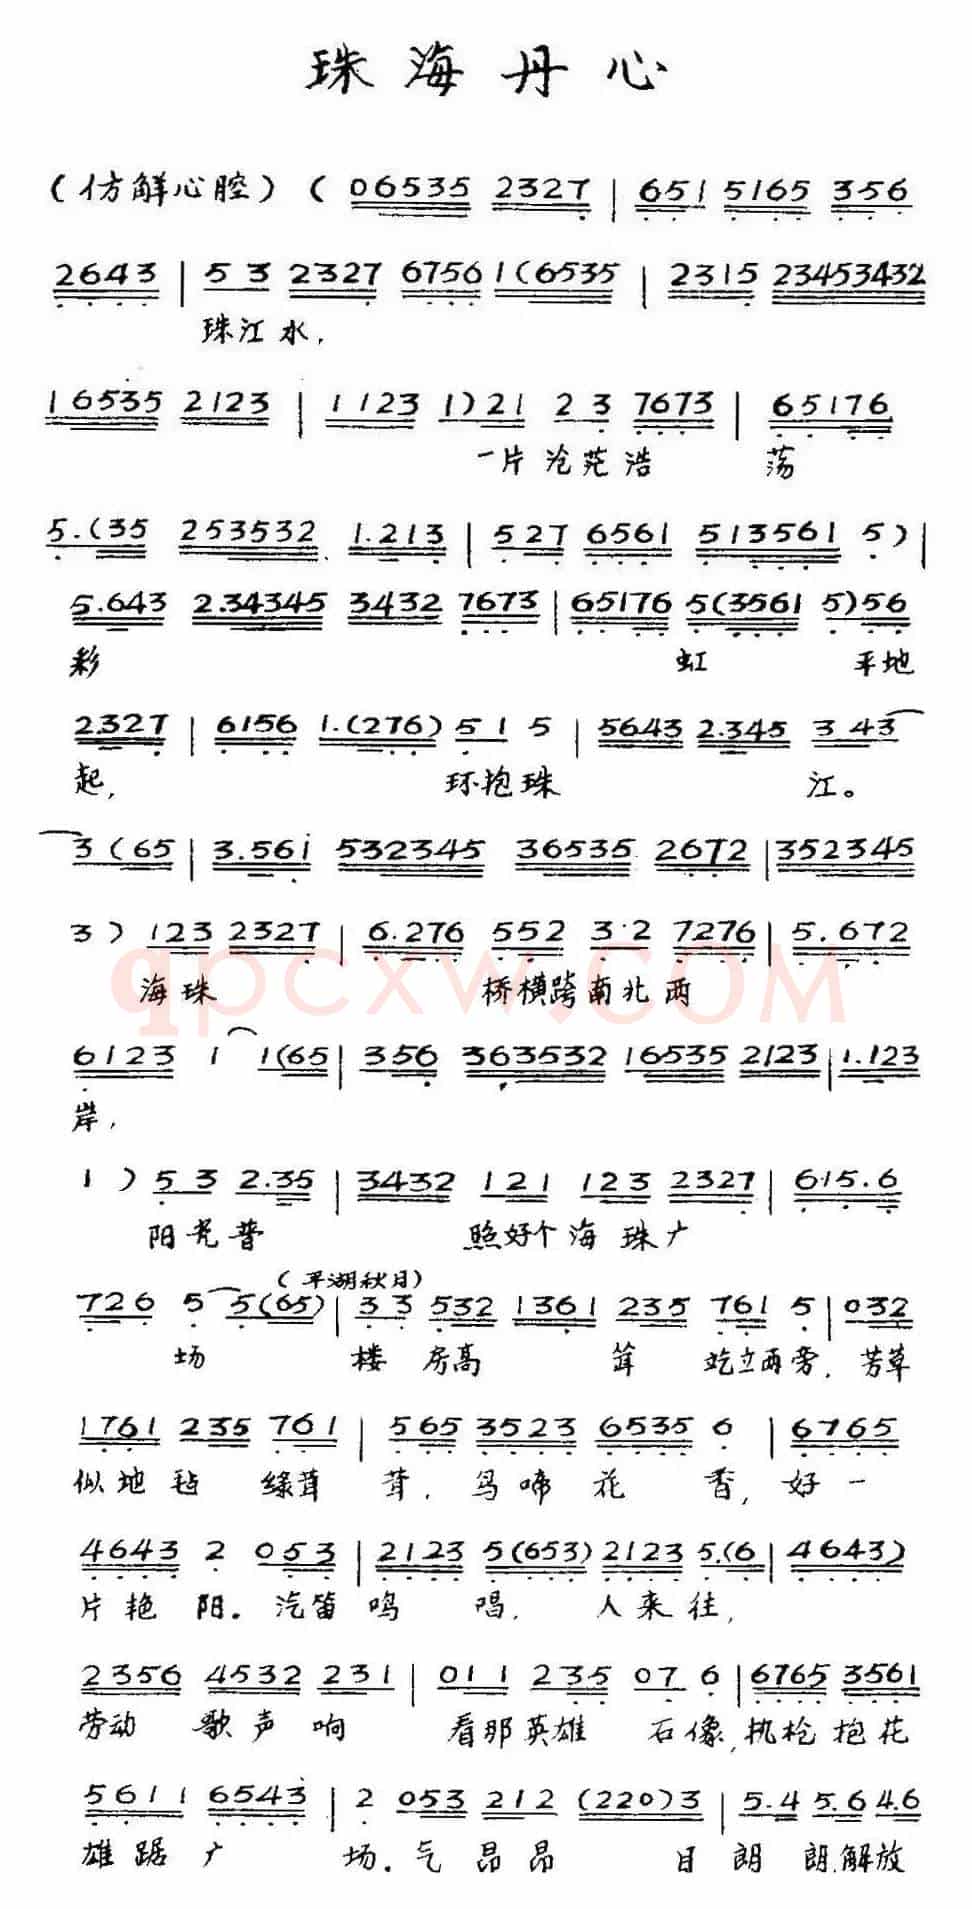 珠海丹心
(仿解心腔) ( 06535 2327 | 651 5165 356
2643 | 5 3 2327 6756 1(6535 | 2315 23453432
珠江水,
16535 2123 | 1123 1)21 2 3 7673 | 65176
一片沧茫浩 荡
5.(35 253532 1.213 | 527 6561 513561 5) |
5.643 2.34345 3432 7673 | 65176 5(3561 5)56
彩 虹 平地
2.327 | 6156 1.(276) 5 1 5 | 5643 2.345 3 43
起, 环抱珠 江。
3(65 | 3.561 532345 36535 2672 | 352345
3) 123 2327 | 6.276 552 3.2 7276 | 5.672
海珠 桥横跨南北两
qpcxw.COM
6123 1 1(65 | 356 363532 16535 2123 | 1.123
岸,
1) 5 3 2.35 | 3432 121 123 2327 | 615.6
阳光普 照好个海珠广
(平湖秋月)
726 5 5(65) | 3 3 532 1361 235 761 5 | 032
场 楼房高 耸 屹立两旁, 芳草
1761 235 761 | 565 3523 6535 6 | 6765
似地毡 绿茸 茸, 鸟啼花 香, 好一
4643 2 053 | 2123 5(653) 2123 5.(6 | 4643)
片艳 阳。汽笛鸣 唱, 人来往,
2356 4532 231 | 011 235 07 6 | 6765 3561
劳动 歌声响 看那英雄 石像,执枪抱花
5611 6543 | 2 053 212 (220)3 | 5.4 5.6 4.6
雄踞广 场。气昂昂 目朗朗,解放